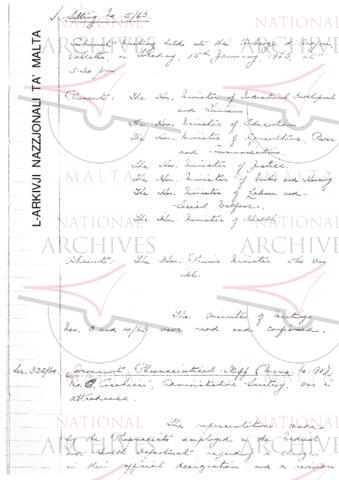 Sitting No. 5/63
Cabinet Meeting held at the Auberge d'
Valletta, on Tuesday, 15th January, 1963, at
5.30 pm
Present: The Hon. Minister of Industrial Development
and Tourism
The Hon. Minister of Education
The Hon. Minister of Agriculture, Power
and Communications
The Hon. Minister of Justice
The Hon. Minister of Works and Housing
The Hon. Minister of Labour and
Social Welfare
The Hon. Minister of Health
Absent: The Hon. Prime Minister who was
The minutes of meetings
Nos. 3 and 4/63 were read and confirmed.
Pharmaceutical Staff
Administrative Secretary, was in
attendance.
The representations made
by the Pharmacists employed in the Medical
and Health Department regarding change
in their official designation and a revision
L-ARKIVJI NAZZJONALI TA' MALTA
NATIONAL
ARCHIVES
MALTA